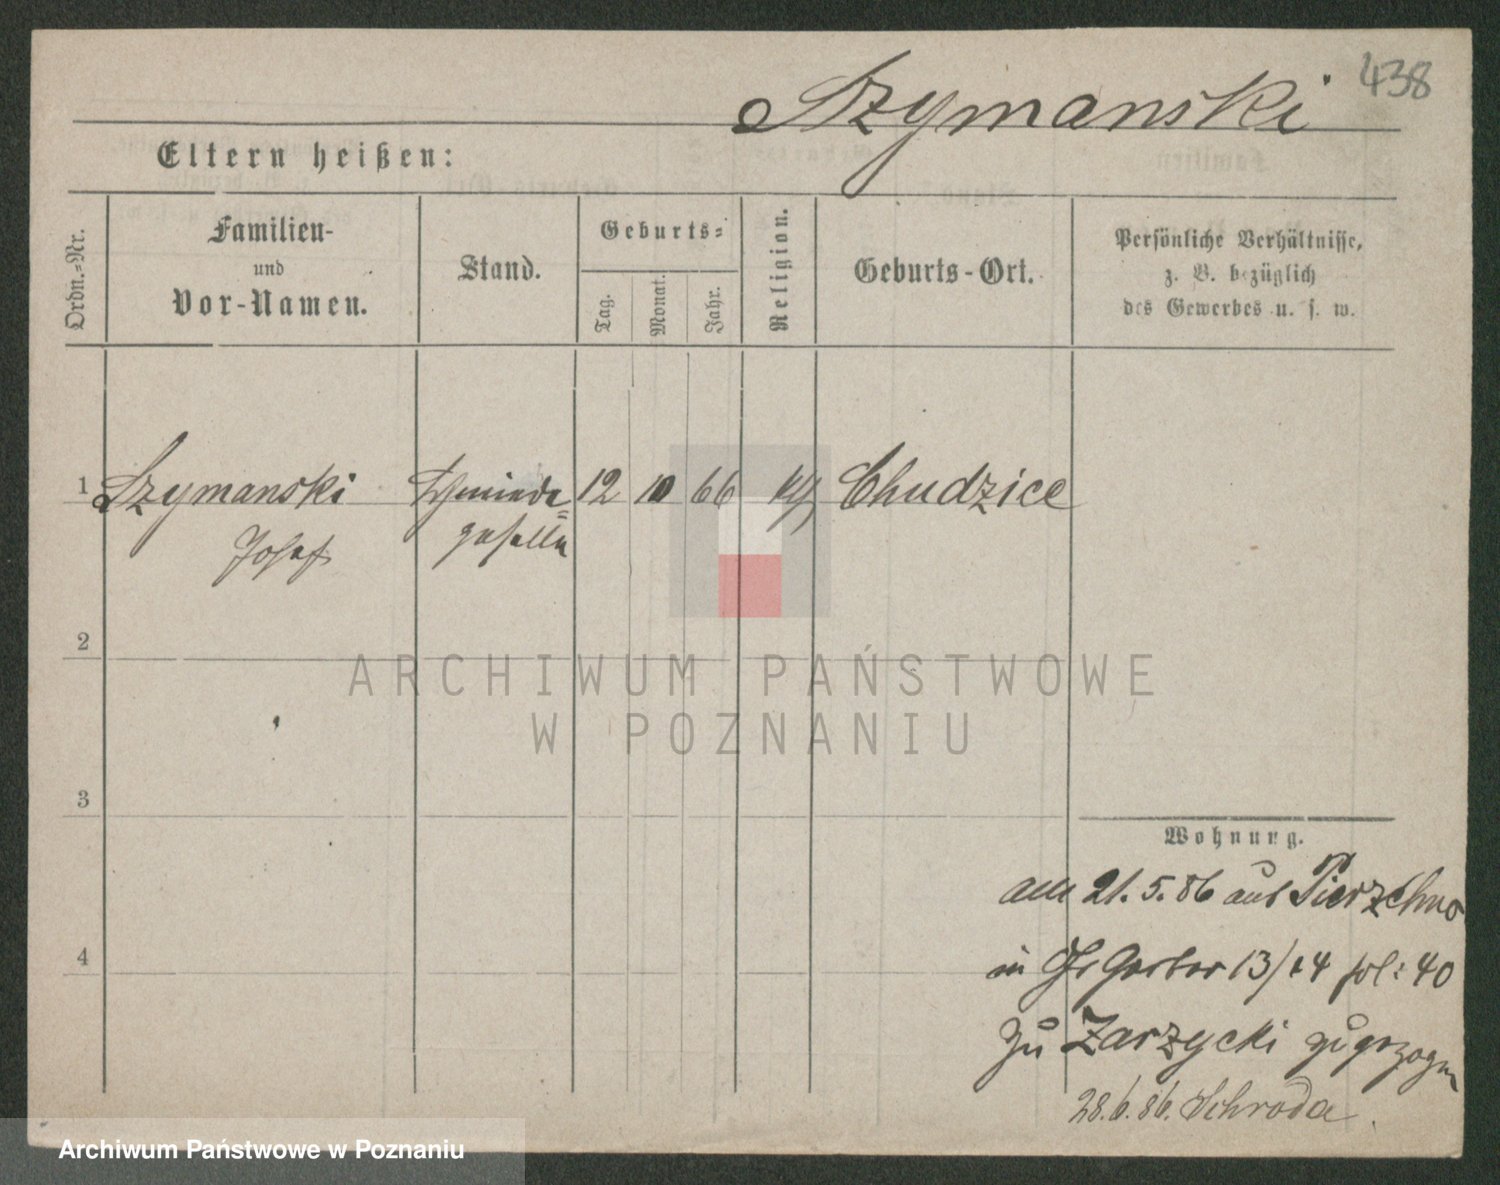 438
Szymanski
Eltern heißen:
Ordn.=Nr.
Familien-
und
Vor-Namen.
Stand.
Geburts=
Tag.
Monat.
Jahr.
Religion.
Geburts-Ort.
Persönliche Verhältnisse,
z. B. bezüglich
des Gewerbes u. s. w.
1 Szymanski Schmiede= 12 10 66 kth Chudzice
Josef geselle
2
ARCHIWUM PAŃSTWOWE
W POZNANIU
3
Wohnung.
am 21.5.86 aus Pierzchno
4
in Gr Gerber 13/14 fol: 40
zu Zarzycki zugezogen
28.6.86. Schroda
Archiwum Państwowe w Poznaniu